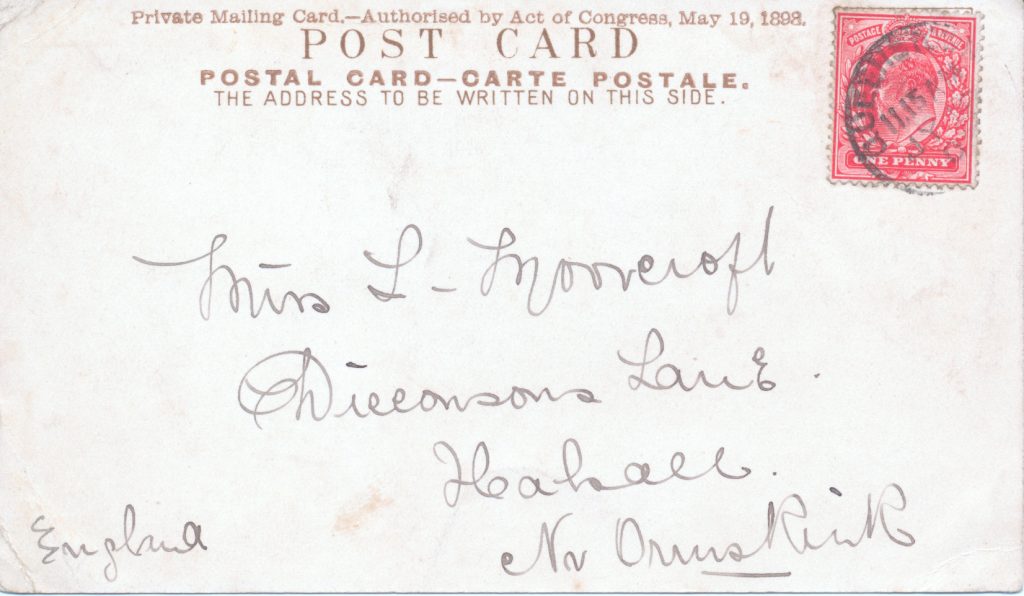 Private Mailing Card.—Authorised by Act of Congress, May 19, 1898.
POST CARD
POSTAL CARD—CARTE POSTALE.
THE ADDRESS TO BE WRITTEN ON THIS SIDE.
POSTAGE & REVENUE
11.15
ONE PENNY
Miss L - Moorcroft
Dicconsons Lane.
Halsall.
Nr Ormskirk
England